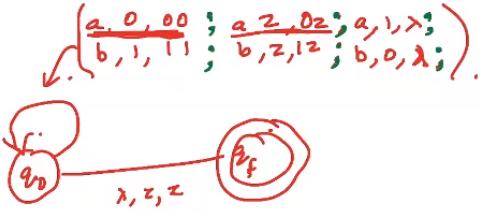 a, 0, 00 ; a z, 0z ; a, 1, λ ;
b, 1, 11 ; b, z, 1z ; b, 0, λ ;
q0
λ, z, z
qf